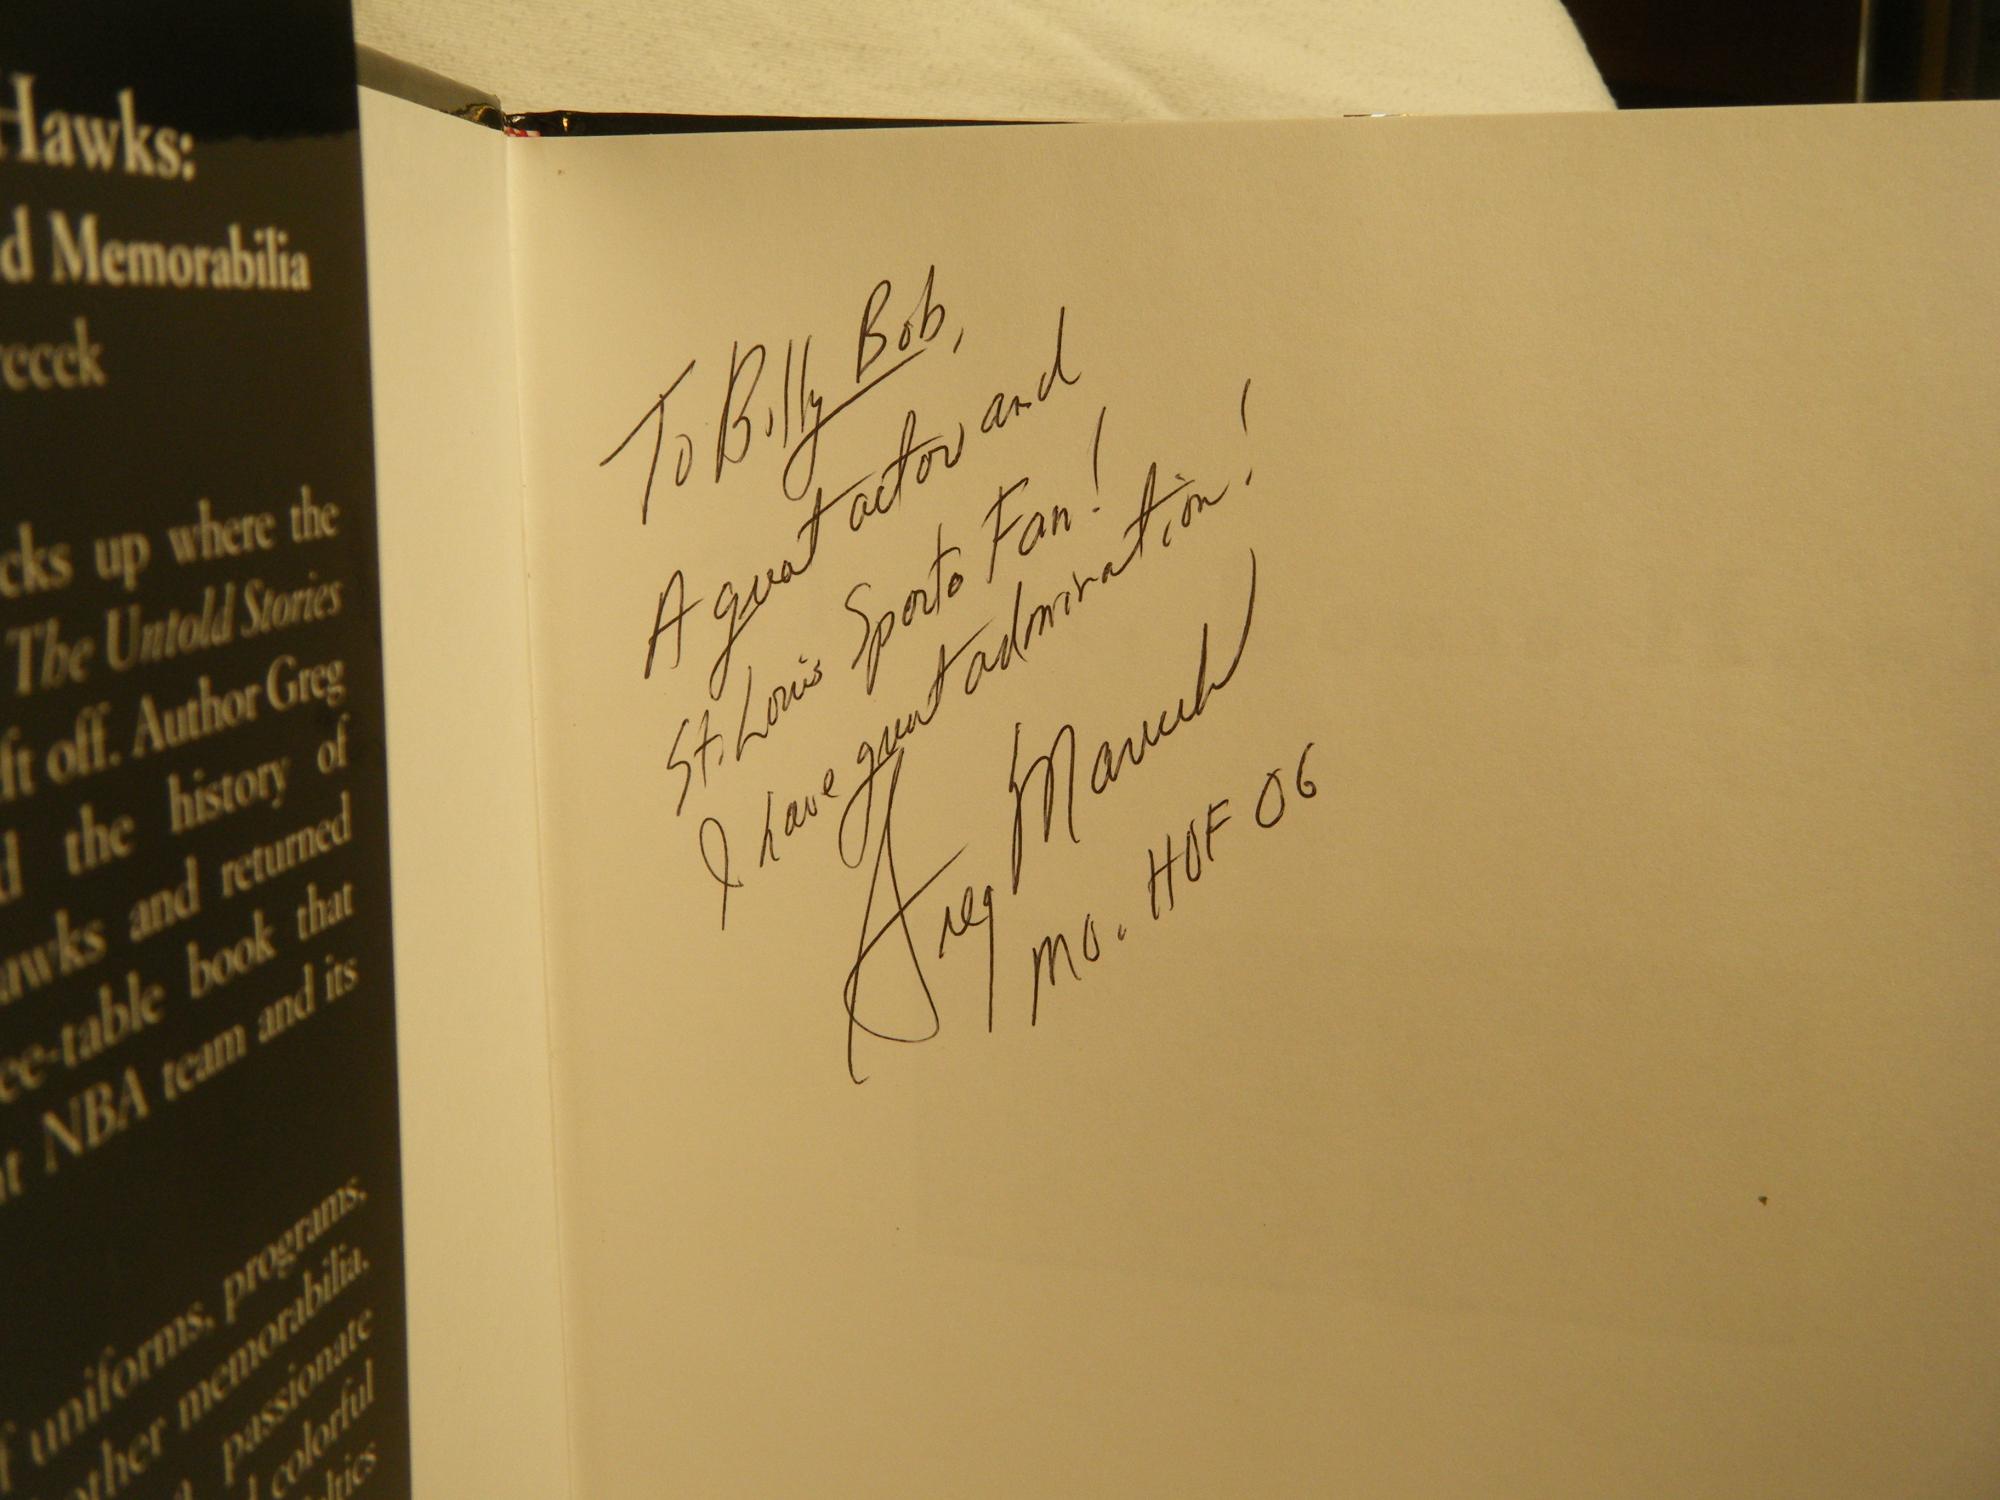 Hawks:
d Memorabilia
recek
cks up where the
The Untold Stories
ft off. Author Greg
d the history of
awks and returned
ee-table book that
at NBA team and its
f uniforms, programs,
other memorabilia,
passionate
d colorful
ltics
To Billy Bob,
A great actor and
St. Louis Sports Fan!
I have great admiration!
Greg Marecek
MO. HOF 06